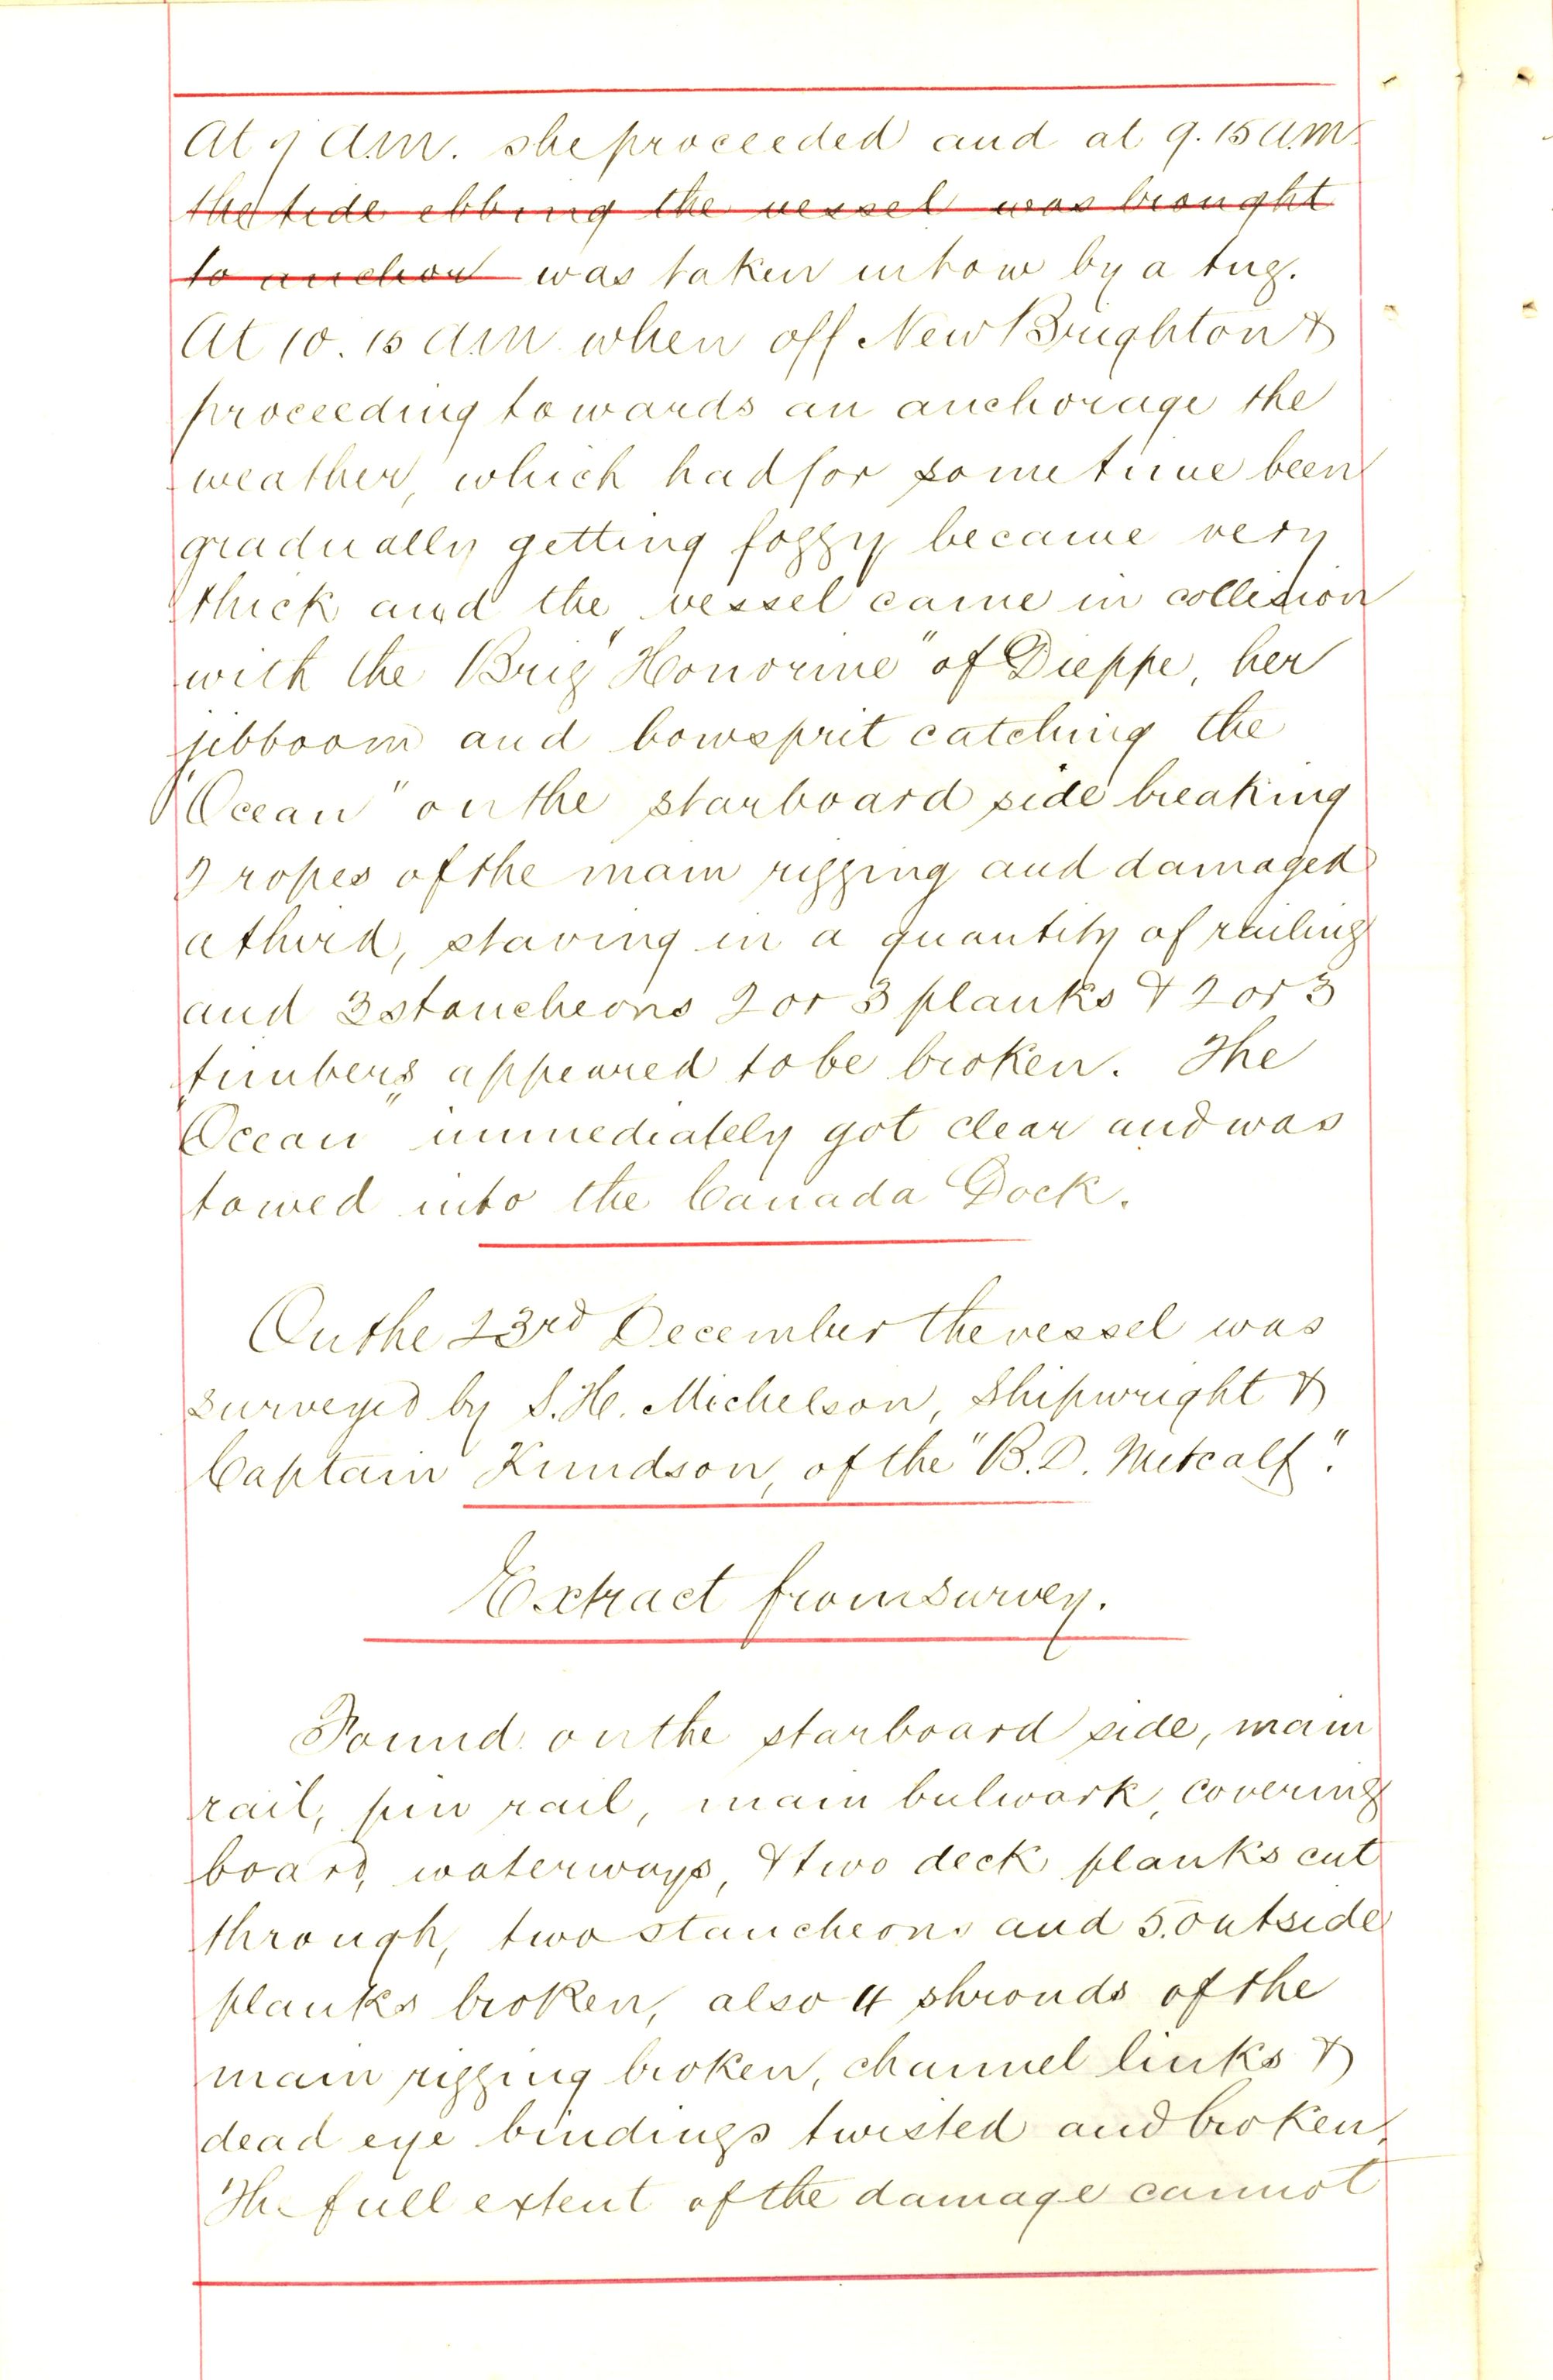 At 7 Am. she proceeded and at 9.15 a.m.
the tide ebbing the vessel was brought
to anchor was taken in tow by a tug.
At 10.15 Am when off New Brighton &
proceeding towards an anchorage the
weather, which had for some time been
gradually getting foggy became very
thick and the vessel came in collision
with the Brig "Honorine" of Dieppe, her
jibboom and bowsprit catching the
"Ocean" on the starboard side breaking
2 ropes of the main rigging and damaged
a third, staving in a quantity of railing
and 3 stancheons 2 or 3 planks & 2 or 3
timbers appeared to be broken. The
"Ocean" immediately got clear and was
towed into the Canada Dock.
On the 23rd December the vessel was
surveyed by S. H. Michelson, Shipwright &
Captain Knudson, of the "B. D. Metcalf".
Extract from Survey.
Found on the starboard side, main
rail, pin rail, main bulwark, covering
board, waterways, & two deck planks cut
through, two stancheons and 5. outside
planks broken, also 4 shrouds of the
main rigging broken, channel links &
dead eye bindings twisted and broken.
The full extent of the damage cannot